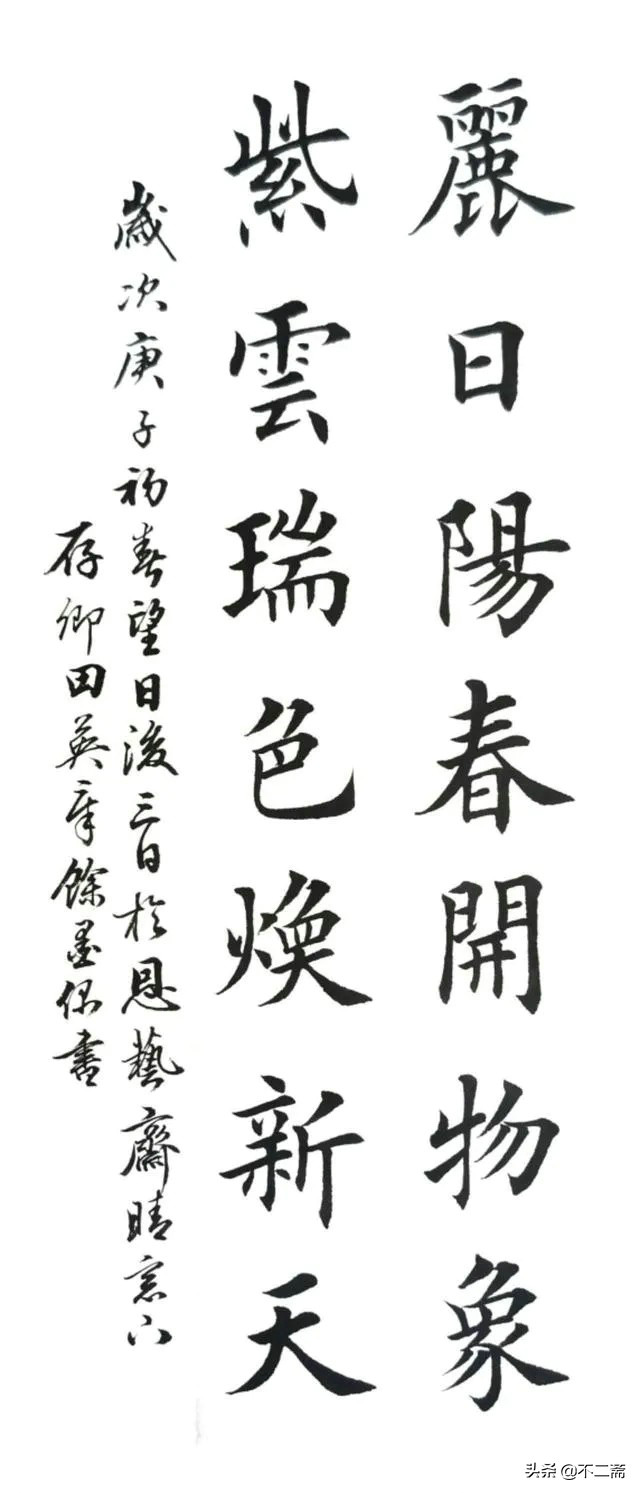 麗日陽春開物象
紫雲瑞色煥新天
歲次庚子初春望日後三日於恩藝齋晴窓下
存卿田英章餘墨偶書
头条 @不二斋